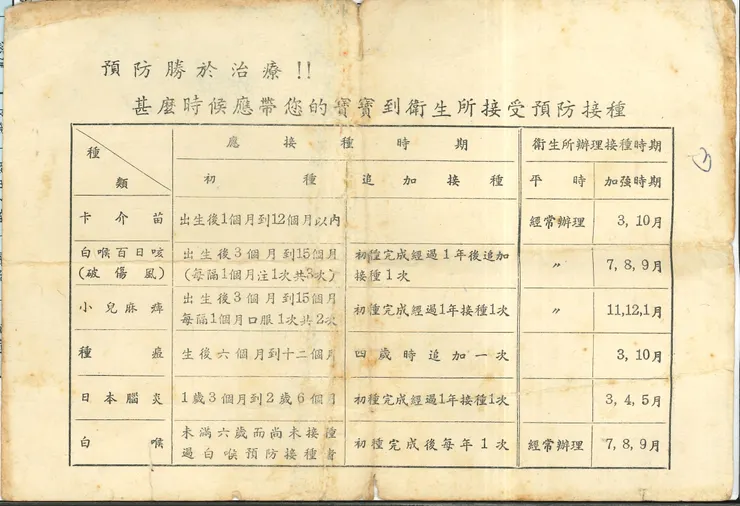 預防勝於治療!!
甚麼時候應帶您的寶寶到衛生所接受預防接種
種類 應接種時期 衛生所辦理接種時期
初種 追加接種 平時 加強時期
卡介苗 出生後1個月到12個月以內 經常辦理 3, 10月
白喉百日咳 出生後3個月到15個月 初種完成經過1年後追加 〃 7, 8, 9月
(破傷風) (每隔1個月注1次共3次) 接種1次
小兒麻痺 出生後3個月到15個月 初種完成經過1年接種1次 〃 11,12,1月
每隔1個月口服1次共2次
種痘 生後六個月到十二個月 四歲時追加一次 3, 10月
日本腦炎 1歲3個月到2歲6個月 初種完成經過1年接種1次 3, 4, 5月
白喉 未滿六歲而尚未接種 初種完成後每年1次 經常辦理 7, 8, 9月
過白喉預防接種者